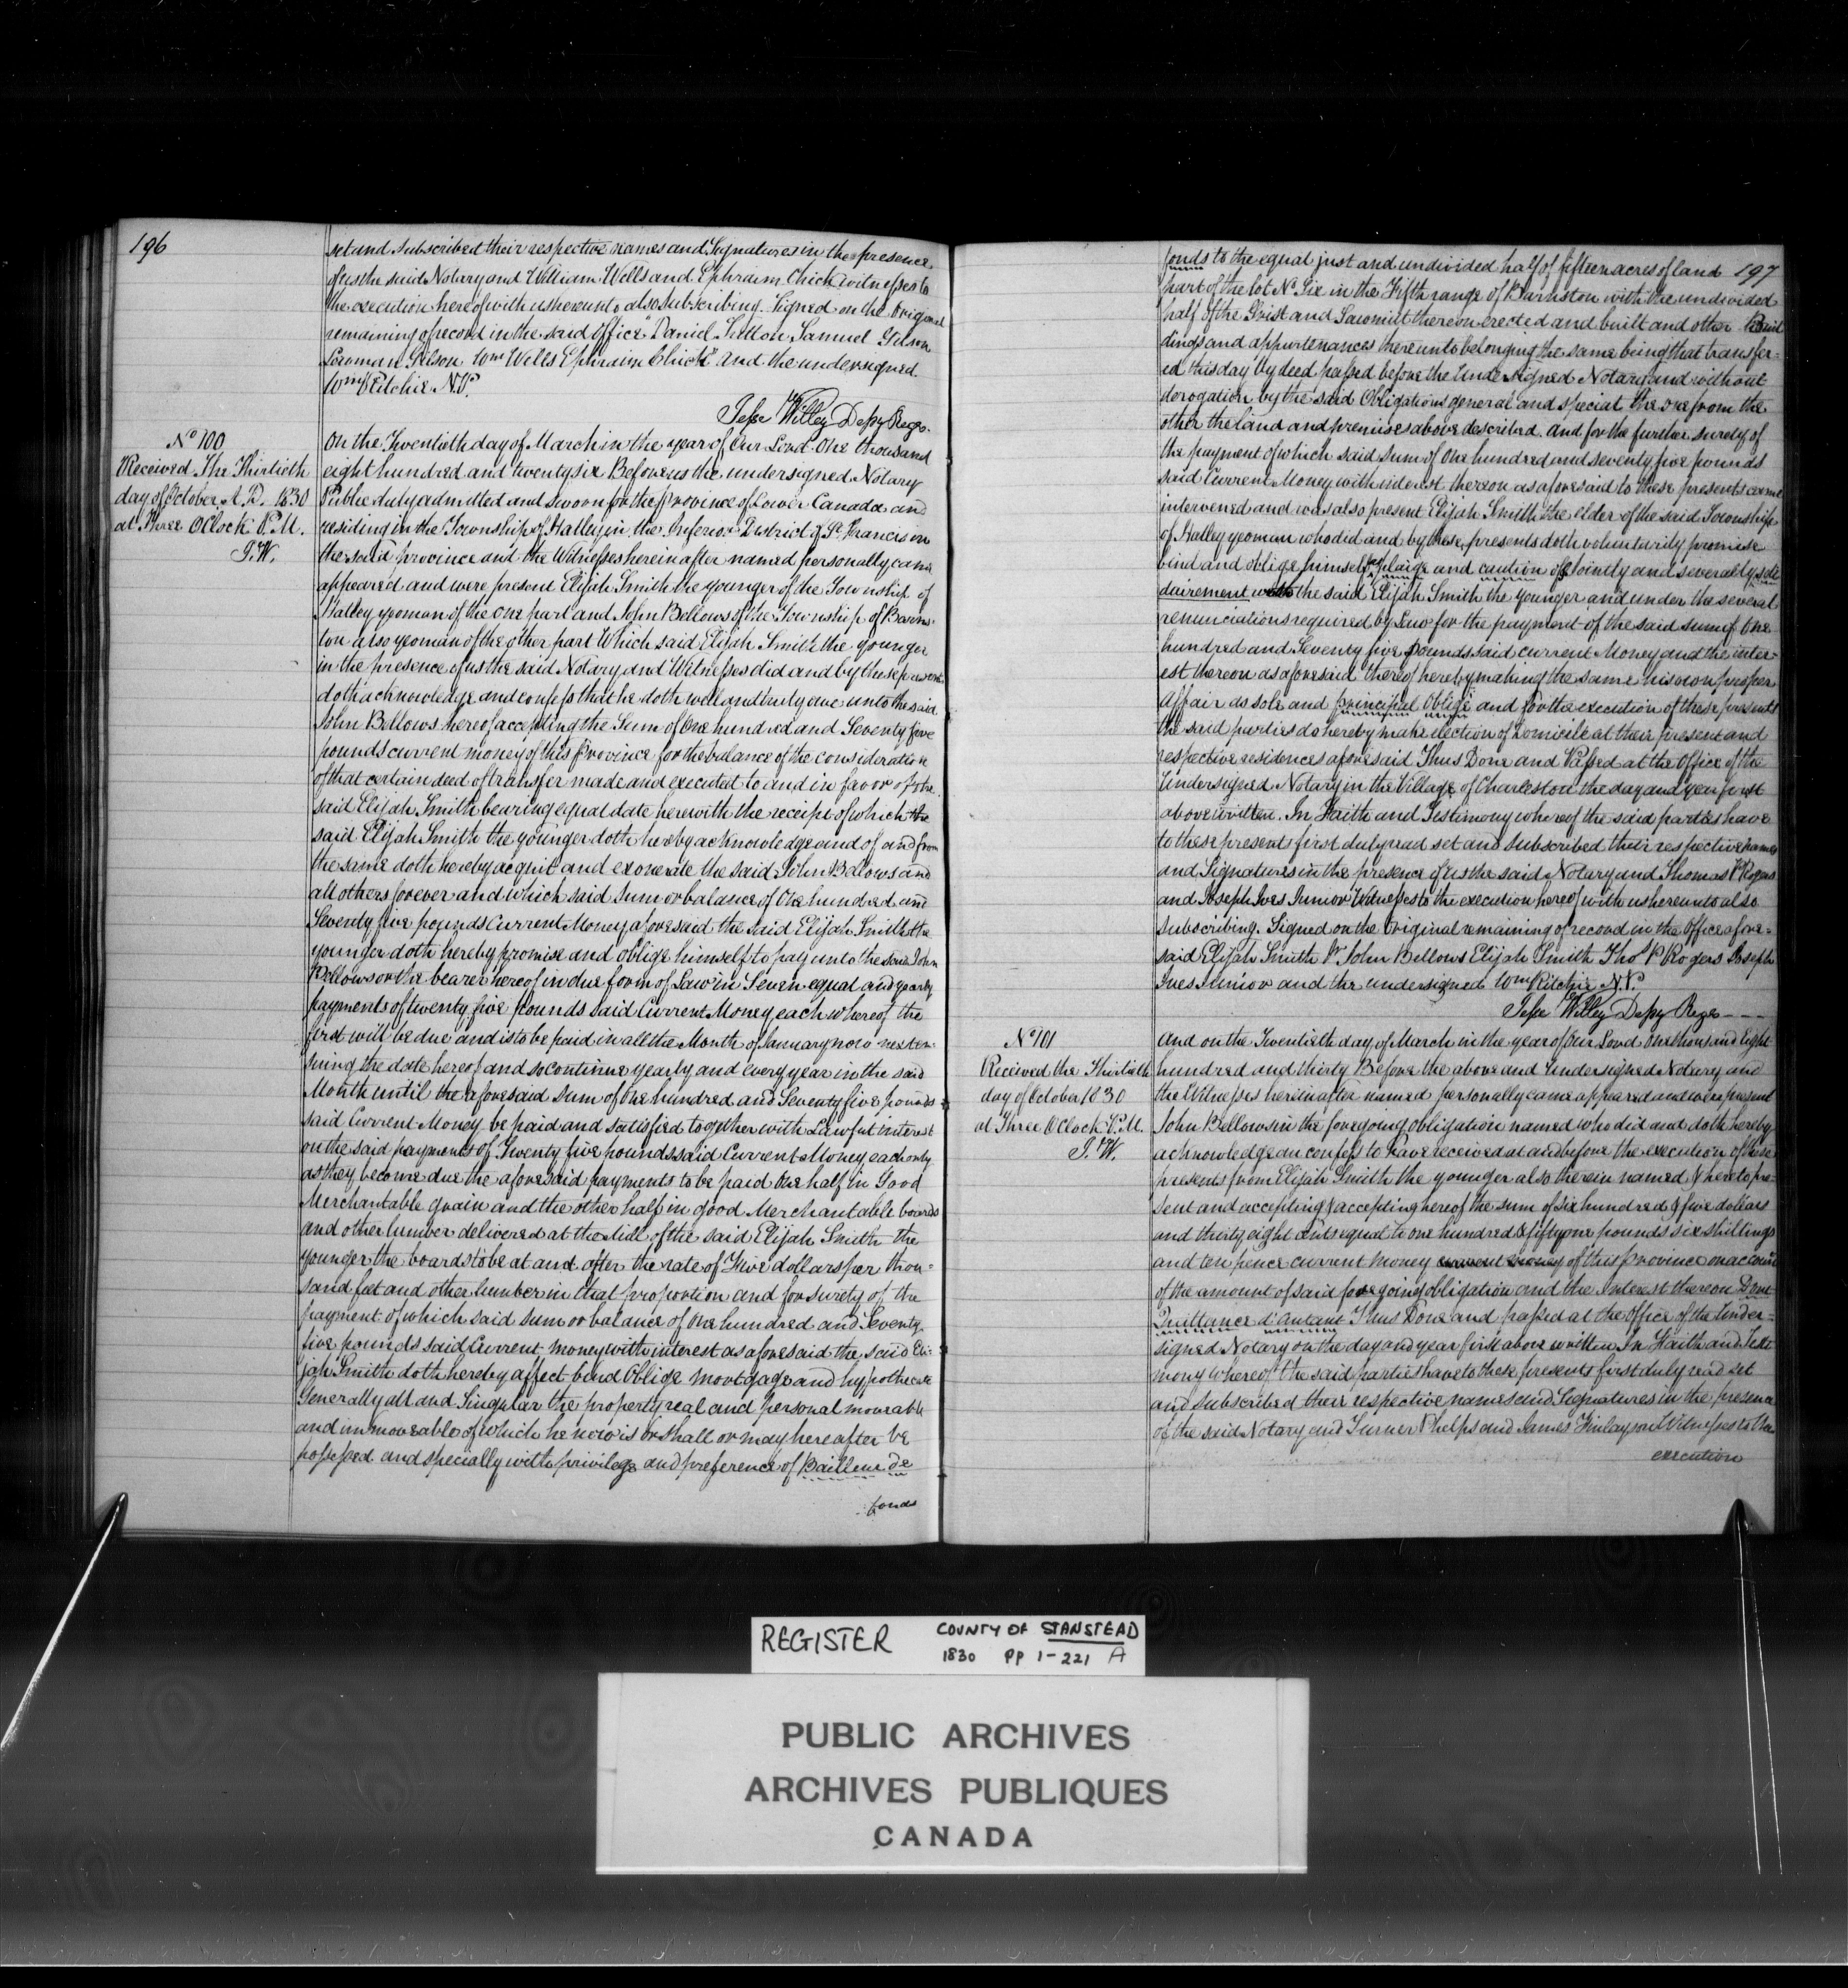 196
set and subscribed their respective names and Signatures in the presence
of us the said Notary and William Wells and Ephraim Chick witnesses to
the execution hereof with us hereunto also subscribing. Signed on the Original
remaining of record in the said Office "Daniel Sutton Samuel Gilson
Loroman Gilson Wm Wells Ephraim Chick" and the undersigned
Wm Ritchie N.P.
Jesse Willey Depy Regr.
No 100
Received The Thirtieth
day of October A.D. 1830
at Three OClock P.M.
J.W.
On the Twentieth day of March in the year of Our Lord One thousand
eight hundred and twenty six Before us the undersigned Notary
Public duly admitted and sworn for the province of Lower Canada and
residing in the Township of Hatley in the Inferior District of St Francis in
the said province and the Witnesses herein after named personally came
appeared and were present Elijah Smith the younger of the Township of
Hatley yeoman of the one part and John Bellows of the Township of Barns-
ton also yeoman of the other part Which said Elijah Smith the younger
in the presence of us the said Notary and Witnesses did and by these presents
doth acknowledge and confess that he doth well and truly owe unto the said
John Bellows hereof accepting the Sum of One hundred and Seventy five
pounds current money of this Province for the balance of the consideration
of that certain deed of transfer made and executed to and in favor of the
said Elijah Smith bearing equal date herewith the receipt of which the
said Elijah Smith the younger doth hereby acknowledge and of and from
the same doth hereby acquit and exonerate the said John Bellows and
all others forever and which said Sum or balance of One hundred and
Seventy five pounds Current Money aforesaid the said Elijah Smith the
younger doth hereby promise and oblige himself to pay unto the said John
Bellows or the bearer hereof in due form of Law in Seven equal and yearly
payments of twenty five pounds said Current Money each whereof the
first will be due and is to be paid in all the Month of January now next en-
suing the date hereof and so continue yearly and every year in the said
Month until the aforesaid Sum of One hundred and Seventy five pounds
said Current Money be paid and satisfied together with Lawful interest
on the said payments of Twenty five pounds said Current Money each only
as they become due the aforesaid payments to be paid One half in Good
Merchantable grain and the other half in good Merchantable boards
and other lumber delivered at the Mill of the said Elijah Smith the
younger the boards to be at and after the rate of Five dollars per thou-
sand feet and other lumber in that proportion and for surety of the
payment of which said sum or balance of One hundred and Seventy
five pounds said Current money with interest as aforesaid the said Eli-
jah Smith doth hereby affect bind Oblige mortgage and hypothecate
Generally all and Singular the property real and personal moveable
and immoveable of which he now is or shall or may hereafter be
possessed and specially with privilege and preference of Bailleur de
fonds
197
fonds to the equal just and undivided half of fifteen acres of land
part of the lot No Six in the Fifth range of Barnston with the undivided
half of the Grist and Sawmill thereon erected and built and other Buil
dings and appurtenances thereunto belonging the same being that transfer-
ed this day by deed passed before the Undersigned Notary and without
derogation by the said Obligations general and special the one from the
other the land and premises above described and for the further surety of
the payment of which said Sum of One hundred and seventy five pounds
said Current Money with interest thereon as aforesaid to these presents came
intervened and was also present Elijah Smith the elder of the said Township
of Hatley yeoman who did and by these presents doth voluntarily promise
bind and oblige himself as plaige and caution of Jointly and severally soli
dairement with the said Elijah Smith the younger and under the several
renunciations required by Law for the payment of the said sum of One
hundred and Seventy five pounds said current Money and the inter-
est thereon as aforesaid thereof hereby making the same his own proper
Affair as sole and principal Obligé and for the execution of these presents
the said parties do hereby make election of domicile at their present and
respective residences aforesaid Thus Done and Passed at the Office of the
Undersigned Notary in the Village of Charleston the day and year first
above written. In Faith and Testimony whereof the said parties have
to these presents first duly read set and subscribed their respective names
and Signatures in the presence of us the said Notary and Thomas P Rogers
and Joseph Ives Junior Witnesses to the execution hereof with us hereunto also
Subscribing. Signed on the Original remaining of record in the Office afore-
said Elijah Smith Jr John Bellows Elijah Smith Thos P Rogers Joseph
Ives Junior and the undersigned Wm Ritchie N.P.
Jesse Willey Depy Regr
No 101
Received the Thirtieth
day of October 1830
at Three OClock P.M.
J.W.
And on the Twentieth day of March in the year of Our Lord One thousand Eight
hundred and thirty Before the above and Undersigned Notary and
the Witnesses hereinafter named personally came appeared and were present
John Bellows in the foregoing obligation named who did and doth hereby
acknowledge an confess to have received at and before the execution of these
presents from Elijah Smith the younger also therein named & hereto pre-
sent and accepting & accepting hereof the sum of Six hundred & five dollars
and thirty eight cents equal to one hundred & fifty one pounds six shillings
and ten pence current money current money of this province on account
of the amount of said foregoing obligation and the Interest thereon Dont
Quittance d'autant Thus Done and passed at the Office of the Under-
signed Notary on the day and year first above written In Faith and Testi
mony whereof the said parties have to these presents first duly read set
and subscribed their respective names and Signatures in the presence
of the said Notary and Turner Phelps and James Finlayson Witnesses to the
execution
REGISTER COUNTY OF STANSTEAD
1830 PP 1-221 A
PUBLIC ARCHIVES
ARCHIVES PUBLIQUES
CANADA